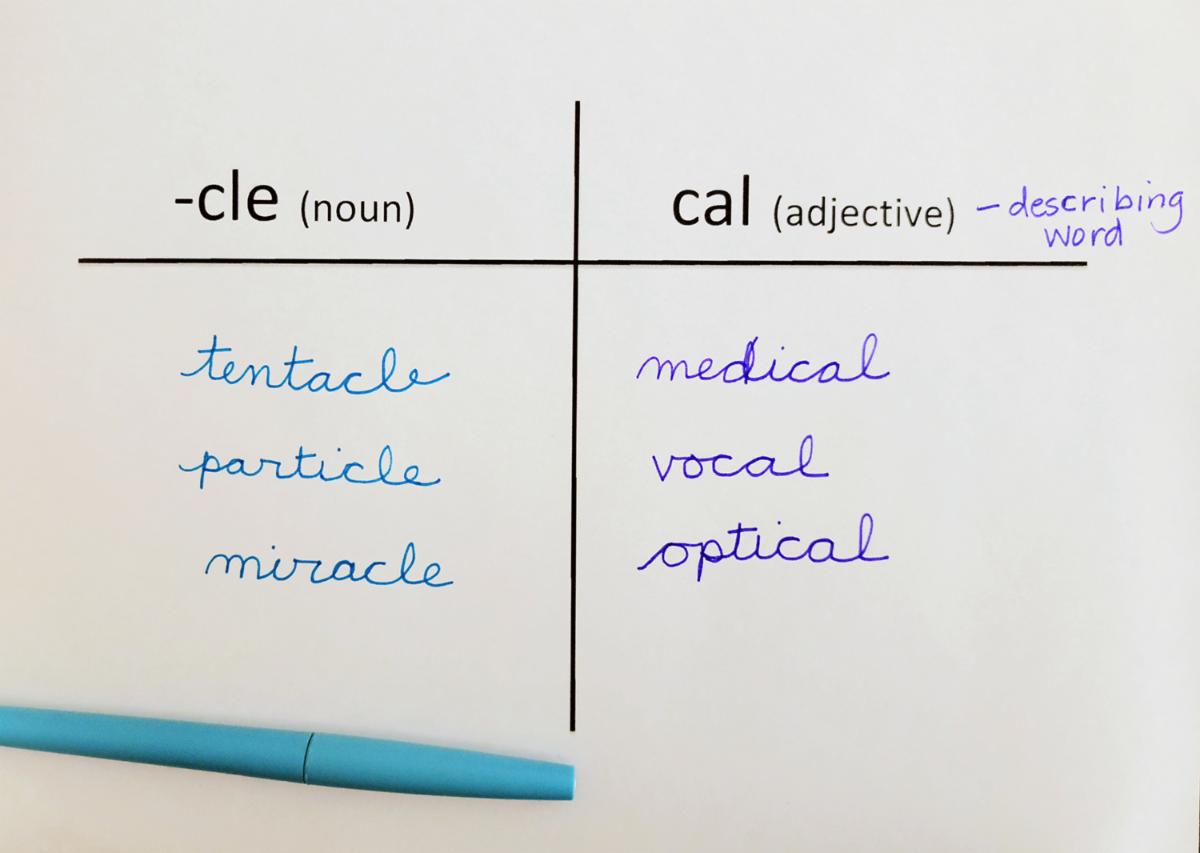 -cle (noun)
cal (adjective) – describing
word
tentacle
particle
miracle
medical
vocal
optical